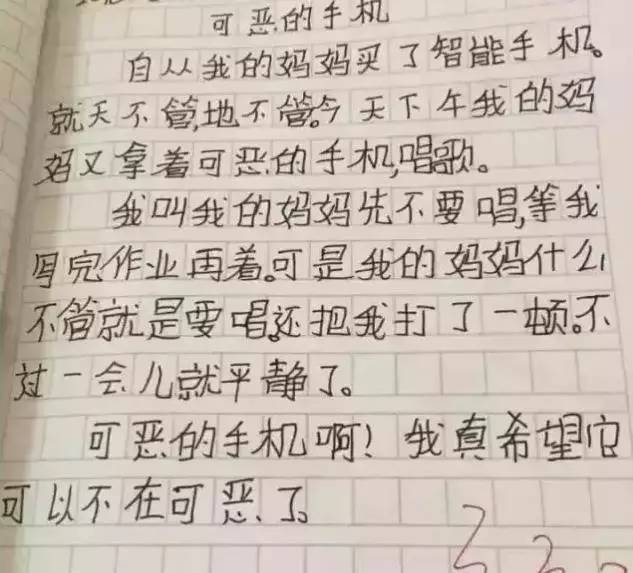 可恶的手机
自从我的妈妈买了智能手机。
就天不管,地不管。今天下午我的妈
妈又拿着可恶的手机,唱歌。
我叫我的妈妈先不要唱,等我
写完作业再着。可是我的妈妈什么
不管就是要唱。还把我打了一顿。不
过一会儿就平静了。
可恶的手机啊!我真希望它
可以不在可恶了。